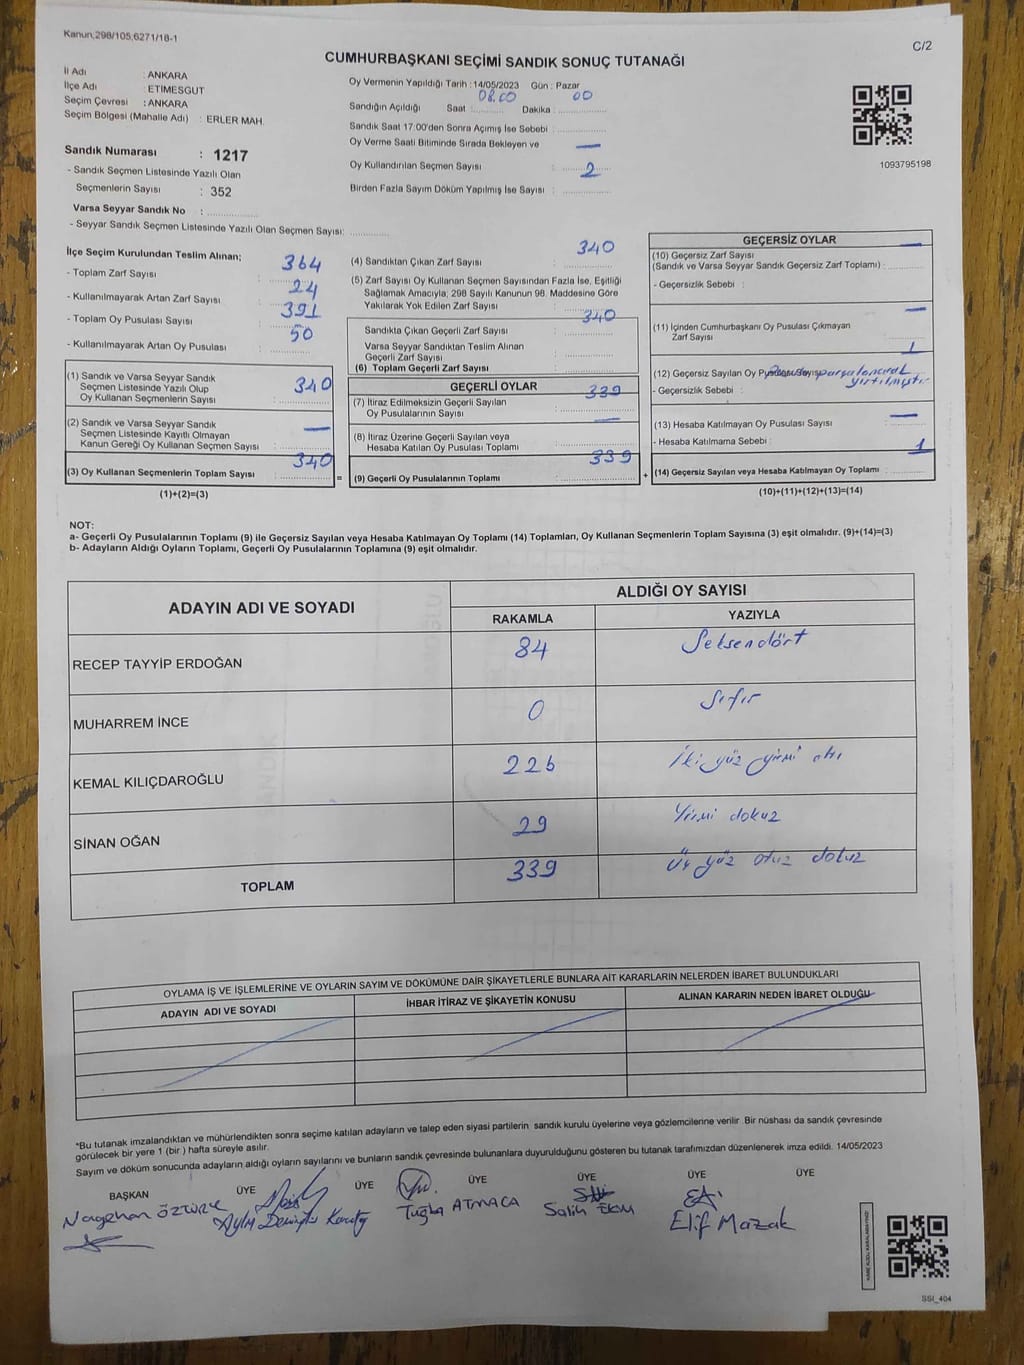 Kanun,298/105,6271/18-1
C/2
CUMHURBAŞKANI SEÇİMİ SANDIK SONUÇ TUTANAĞI
İl Adı : ANKARA
İlçe Adı : ETİMESGUT
Seçim Çevresi : ANKARA
Seçim Bölgesi (Mahalle Adı) : ERLER MAH.
Sandık Numarası : 1217
- Sandık Seçmen Listesinde Yazılı Olan
Seçmenlerin Sayısı : 352
Varsa Seyyar Sandık No : ..............
- Seyyar Sandık Seçmen Listesinde Yazılı Olan Seçmen Sayısı: ..........
Oy Vermenin Yapıldığı Tarih : 14/05/2023 Gün : Pazar
Sandığın Açıldığı Saat : 08.00 Dakika : 00
Sandık Saat 17:00'den Sonra Açımış İse Sebebi : ..............
Oy Verme Saati Bitiminde Sırada Bekleyen ve —
Oy Kullandırılan Seçmen Sayısı : 2
Birden Fazla Sayım Döküm Yapılmış İse Sayısı : ..............
1093795198
İlçe Seçim Kurulundan Teslim Alınan;
- Toplam Zarf Sayısı : 364
- Kullanılmayarak Artan Zarf Sayısı : 24
- Toplam Oy Pusulası Sayısı : 391
- Kullanılmayarak Artan Oy Pusulası : 50
(1) Sandık ve Varsa Seyyar Sandık
Seçmen Listesinde Yazılı Olup
Oy Kullanan Seçmenlerin Sayısı : 340
(2) Sandık ve Varsa Seyyar Sandık
Seçmen Listesinde Kayıtlı Olmayan
Kanun Gereği Oy Kullanan Seçmen Sayısı : —
(3) Oy Kullanan Seçmenlerin Toplam Sayısı : 340
(1)+(2)=(3)
(4) Sandıktan Çıkan Zarf Sayısı : 340
(5) Zarf Sayısı Oy Kullanan Seçmen Sayısından Fazla İse, Eşitliği
Sağlamak Amacıyla, 298 Sayılı Kanunun 98. Maddesine Göre
Yakılarak Yok Edilen Zarf Sayısı : ..............
Sandıkta Çıkan Geçerli Zarf Sayısı : 340
Varsa Seyyar Sandıktan Teslim Alınan
Geçerli Zarf Sayısı : ..............
(6) Toplam Geçerli Zarf Sayısı : ..............
GEÇERLİ OYLAR
(7) İtiraz Edilmeksizin Geçerli Sayılan
Oy Pusulalarının Sayısı : 339
(8) İtiraz Üzerine Geçerli Sayılan veya
Hesaba Katılan Oy Pusulası Toplamı : —
= (9) Geçerli Oy Pusulalarının Toplamı : 339
GEÇERSİZ OYLAR
(10) Geçersiz Zarf Sayısı —
(Sandık ve Varsa Seyyar Sandık Geçersiz Zarf Toplamı) : ..........
- Geçersizlik Sebebi :
(11) İçinden Cumhurbaşkanı Oy Pusulası Çıkmayan
Zarf Sayısı : —
(12) Geçersiz Sayılan Oy Pusulası Sayısı : 1
- Geçersizlik Sebebi : parçalanarak
yırtılmıştır
(13) Hesaba Katılmayan Oy Pusulası Sayısı : —
- Hesaba Katılmama Sebebi :
+ (14) Geçersiz Sayılan veya Hesaba Katılmayan Oy Toplamı : 1
(10)+(11)+(12)+(13)=(14)
NOT:
a- Geçerli Oy Pusulalarının Toplamı (9) ile Geçersiz Sayılan veya Hesaba Katılmayan Oy Toplamı (14) Toplamları, Oy Kullanan Seçmenlerin Toplam Sayısına (3) eşit olmalıdır. (9)+(14)=(3)
b- Adayların Aldığı Oyların Toplamı, Geçerli Oy Pusulalarının Toplamına (9) eşit olmalıdır.
ADAYIN ADI VE SOYADI ALDIĞI OY SAYISI
RAKAMLA YAZIYLA
RECEP TAYYİP ERDOĞAN 84 Seksendört
MUHARREM İNCE 0 Sıfır
KEMAL KILIÇDAROĞLU 226 İki yüz yirmi altı
SİNAN OĞAN 29 Yirmi dokuz
TOPLAM 339 Üç yüz otuz dokuz
OYLAMA İŞ VE İŞLEMLERİNE VE OYLARIN SAYIM VE DÖKÜMÜNE DAİR ŞİKAYETLERLE BUNLARA AİT KARARLARIN NELERDEN İBARET BULUNDUKLARI
ADAYIN ADI VE SOYADI İHBAR İTİRAZ VE ŞİKAYETİN KONUSU ALINAN KARARIN NEDEN İBARET OLDUĞU
*Bu tutanak imzalandıktan ve mühürlendikten sonra seçime katılan adayların ve talep eden siyasi partilerin sandık kurulu üyelerine veya gözlemcilerine verilir. Bir nüshası da sandık çevresinde
görülecek bir yere 1 (bir ) hafta süreyle asılır.
Sayım ve döküm sonucunda adayların aldığı oyların sayılarını ve bunların sandık çevresinde bulunanlara duyurulduğunu gösteren bu tutanak tarafımızdan düzenlenerek imza edildi. 14/05/2023
BAŞKAN ÜYE ÜYE ÜYE ÜYE ÜYE ÜYE
Nagehan ÖZTÜRK Tuğba ATMACA Salih Elif Mazak
SSI_404